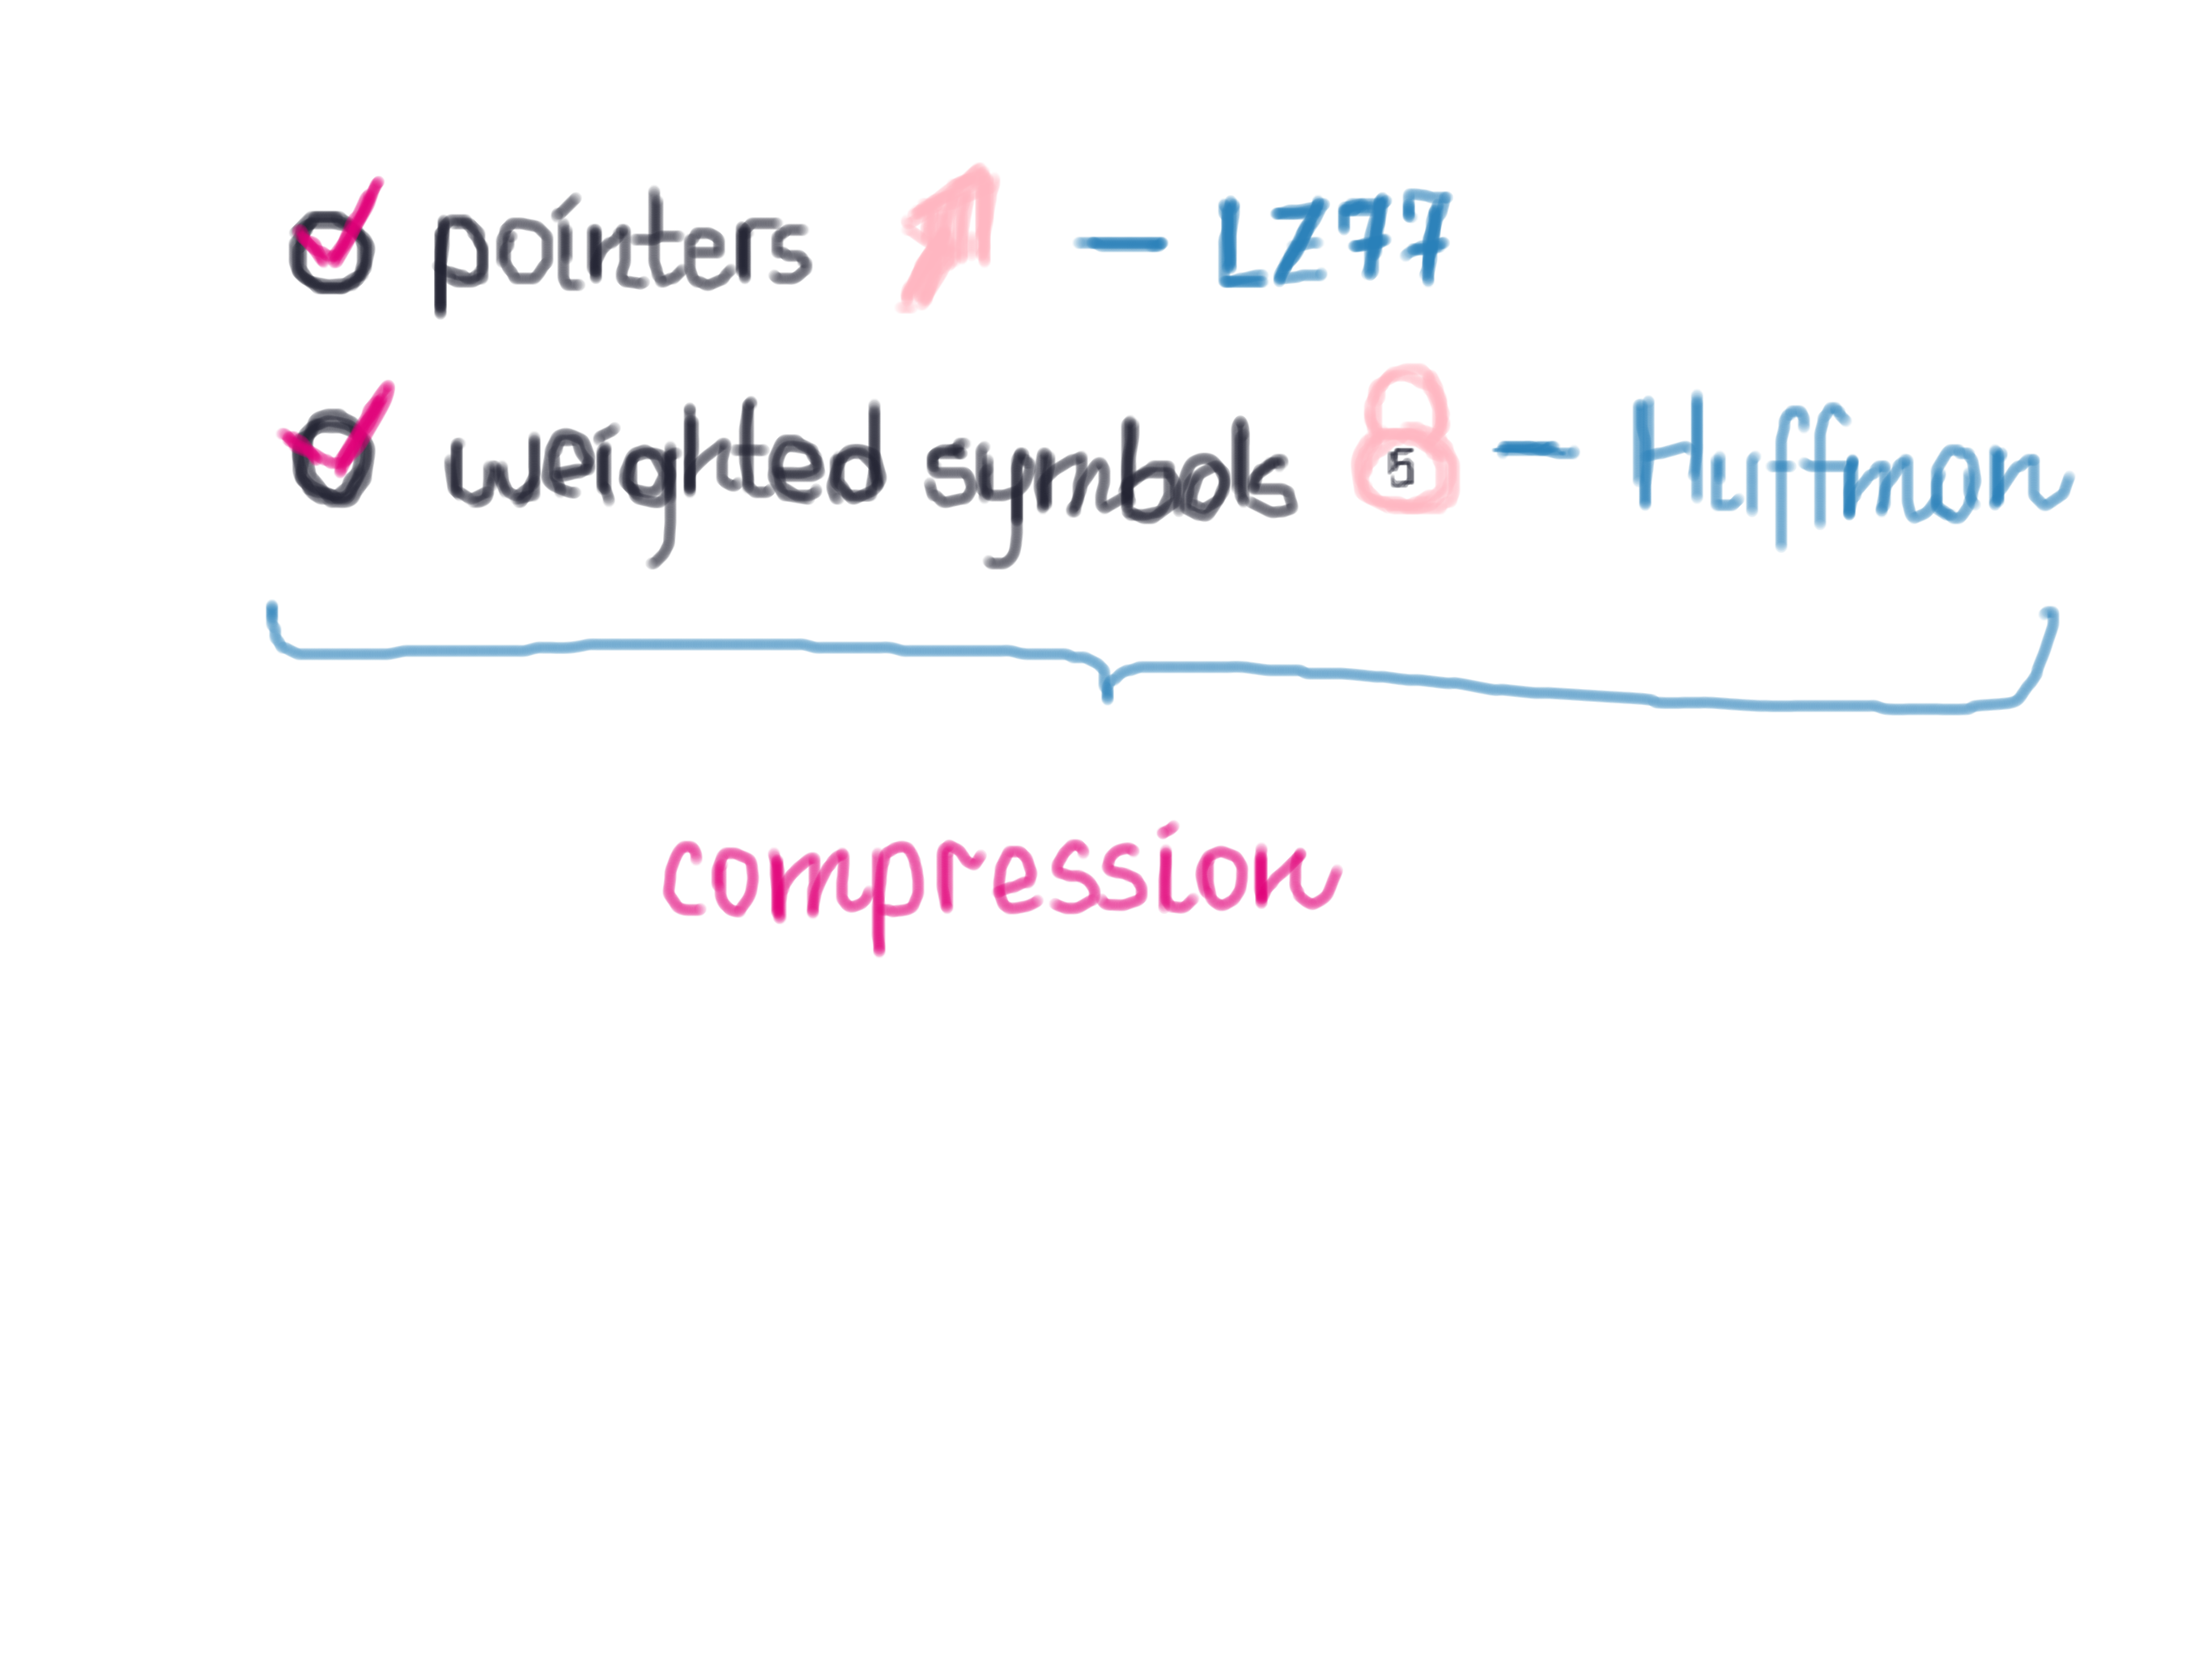 pointers — LZ77
weighted symbols 5 — Huffman
compression